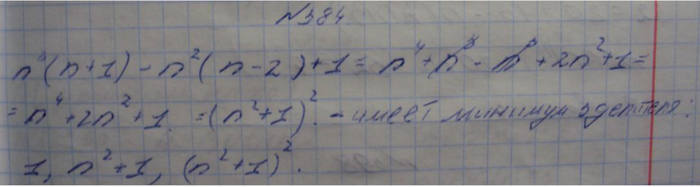 №384
n³(n+1) - n²(n-2)+1 = n⁴+n³-n³+2n²+1=
= n⁴+2n²+1. =(n²+1)². - имеет минимум 3 делителя.
1, n²+1, (n²+1)².